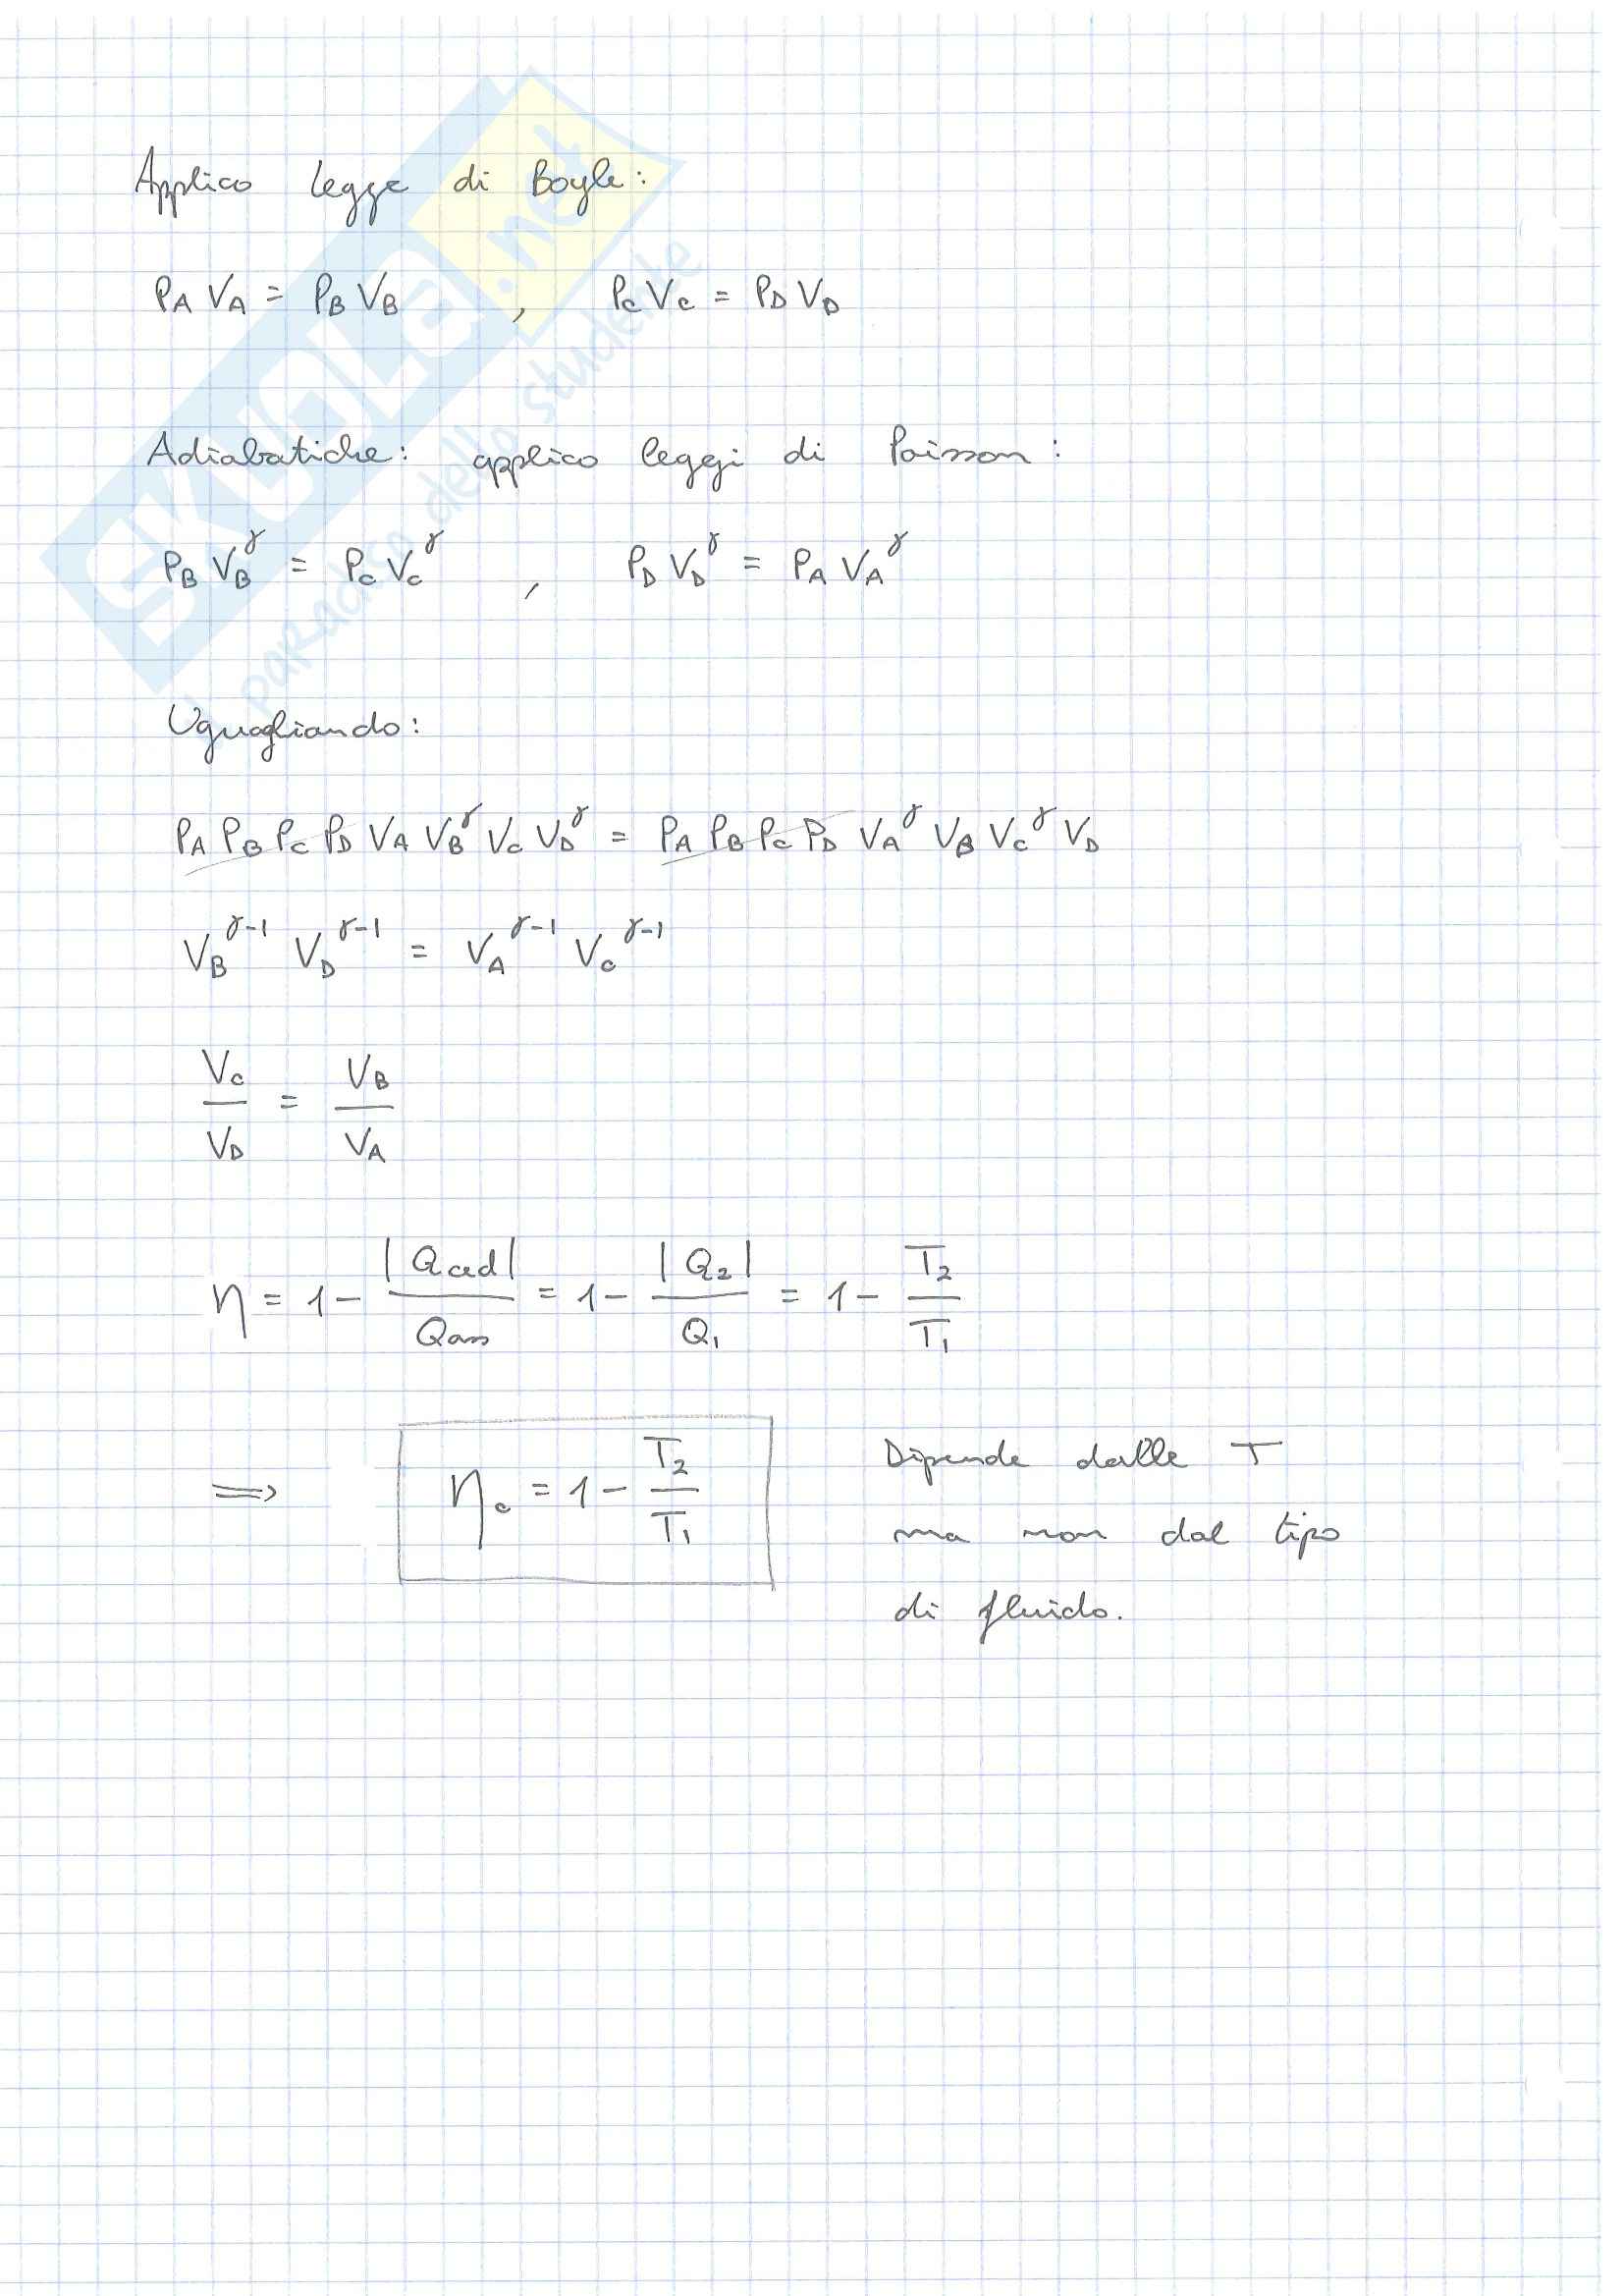 Applico legge di Boyle:
P_A V_A = P_B V_B , P_C V_C = P_D V_D
Adiabatiche: applico leggi di Poisson:
P_B V_B^γ = P_C V_C^γ , P_D V_D^γ = P_A V_A^γ
Uguagliando:
P_A P_B P_C P_D V_A V_B^γ V_C V_D^γ = P_A P_B P_C P_D V_A^γ V_B V_C^γ V_D
V_B^γ-1 V_D^γ-1 = V_A^γ-1 V_C^γ-1
V_C / V_D = V_B / V_A
η = 1 - |Qced| / Qass = 1 - |Q_2| / Q_1 = 1 - T_2 / T_1
⟹ η_c = 1 - T_2 / T_1
Dipende dalle T
ma non dal tipo
di fluido.
SKUOLA.net
il paradiso dello studente